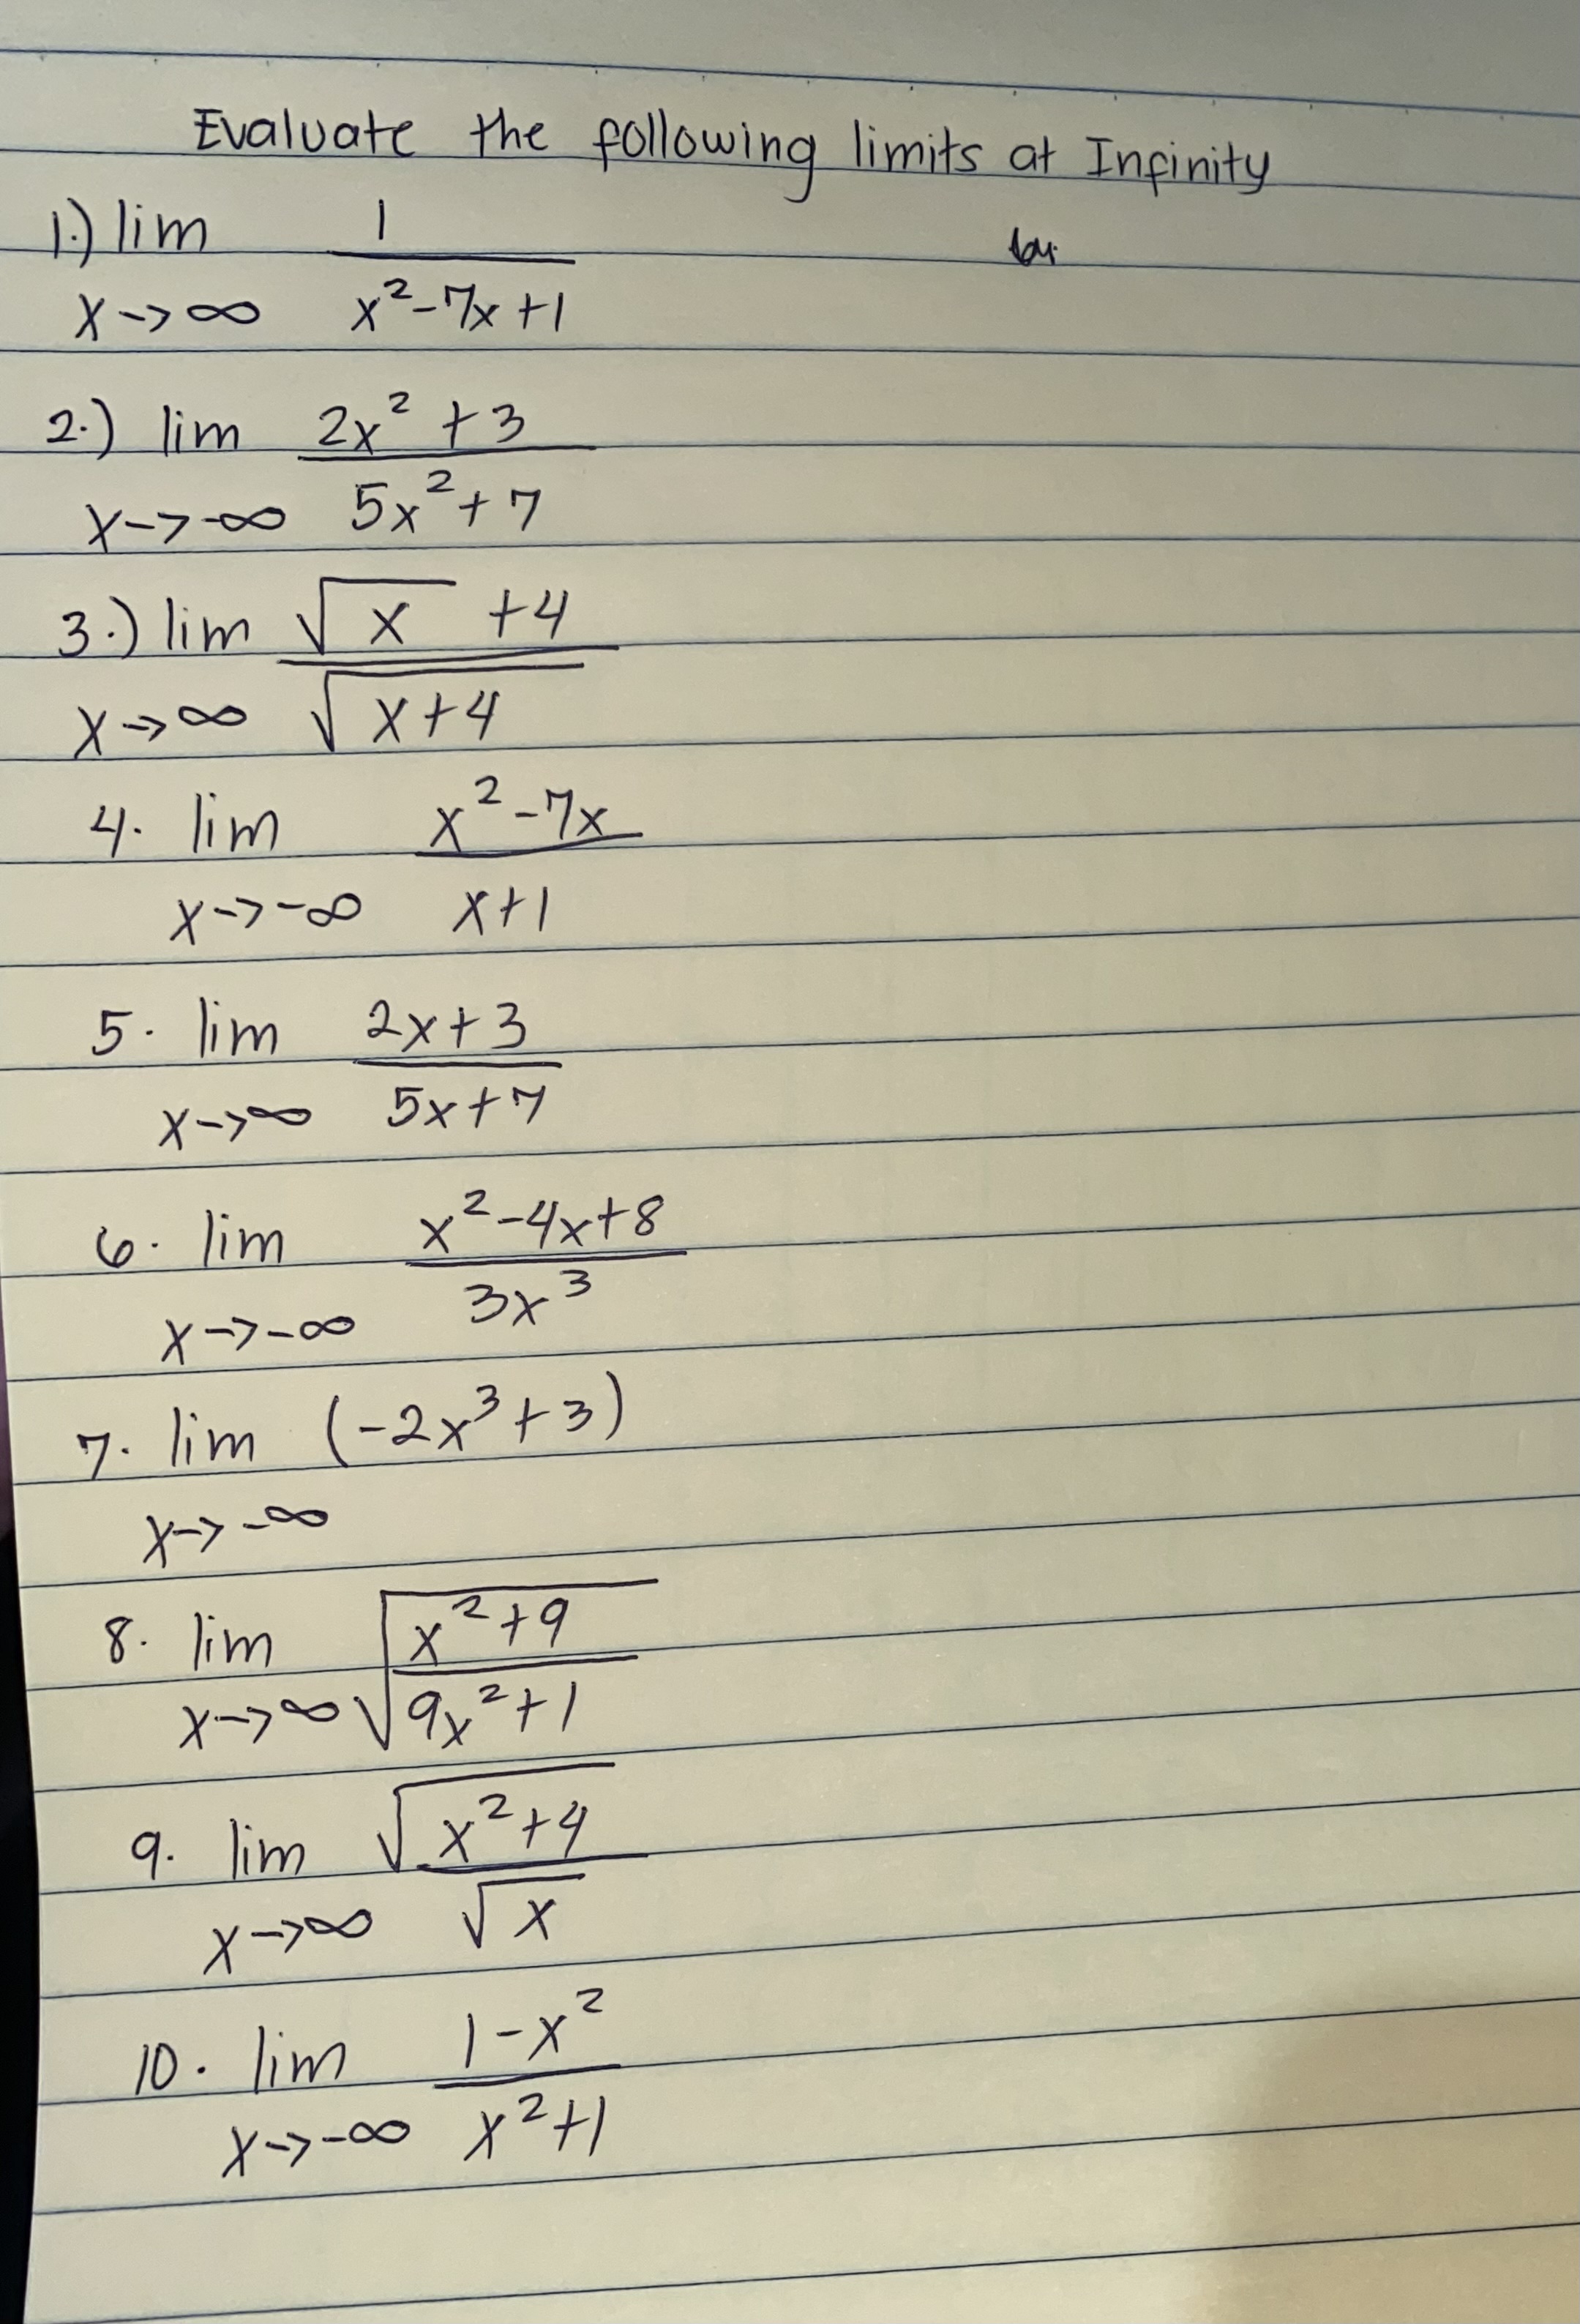 Evaluate the following limits at Infinity
1.) lim 1
x->∞ x²-7x+1
2.) lim 2x² +3
x->-∞ 5x²+7
3.) lim √x +4
x->∞ √x+4
4. lim x²-7x
x->-∞ x+1
5. lim 2x+3
x->∞ 5x+7
6. lim x²-4x+8
x->-∞ 3x³
7. lim (-2x³+3)
x->-∞
8. lim √x²+9
x->∞ 9x²+1
9. lim √x²+4
x->∞ √x
10. lim 1-x²
x->-∞ x²+1